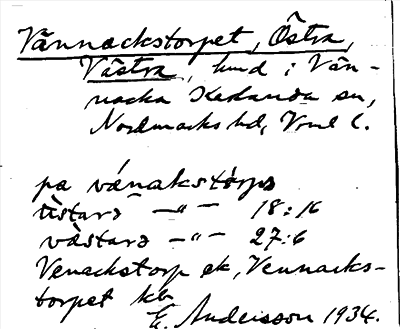 Vännackstorpet, Östra,
Västra, hmd i Vän-
nacka Karlanda sn,
Nordmarks hd, Vrml l.
pa vánakstòrpə
ùstarə –"– 18:16
vàstarə –"– 27:6
Venackstorp ek, Vennacks-
torpet kb
E. Andersson 1934.